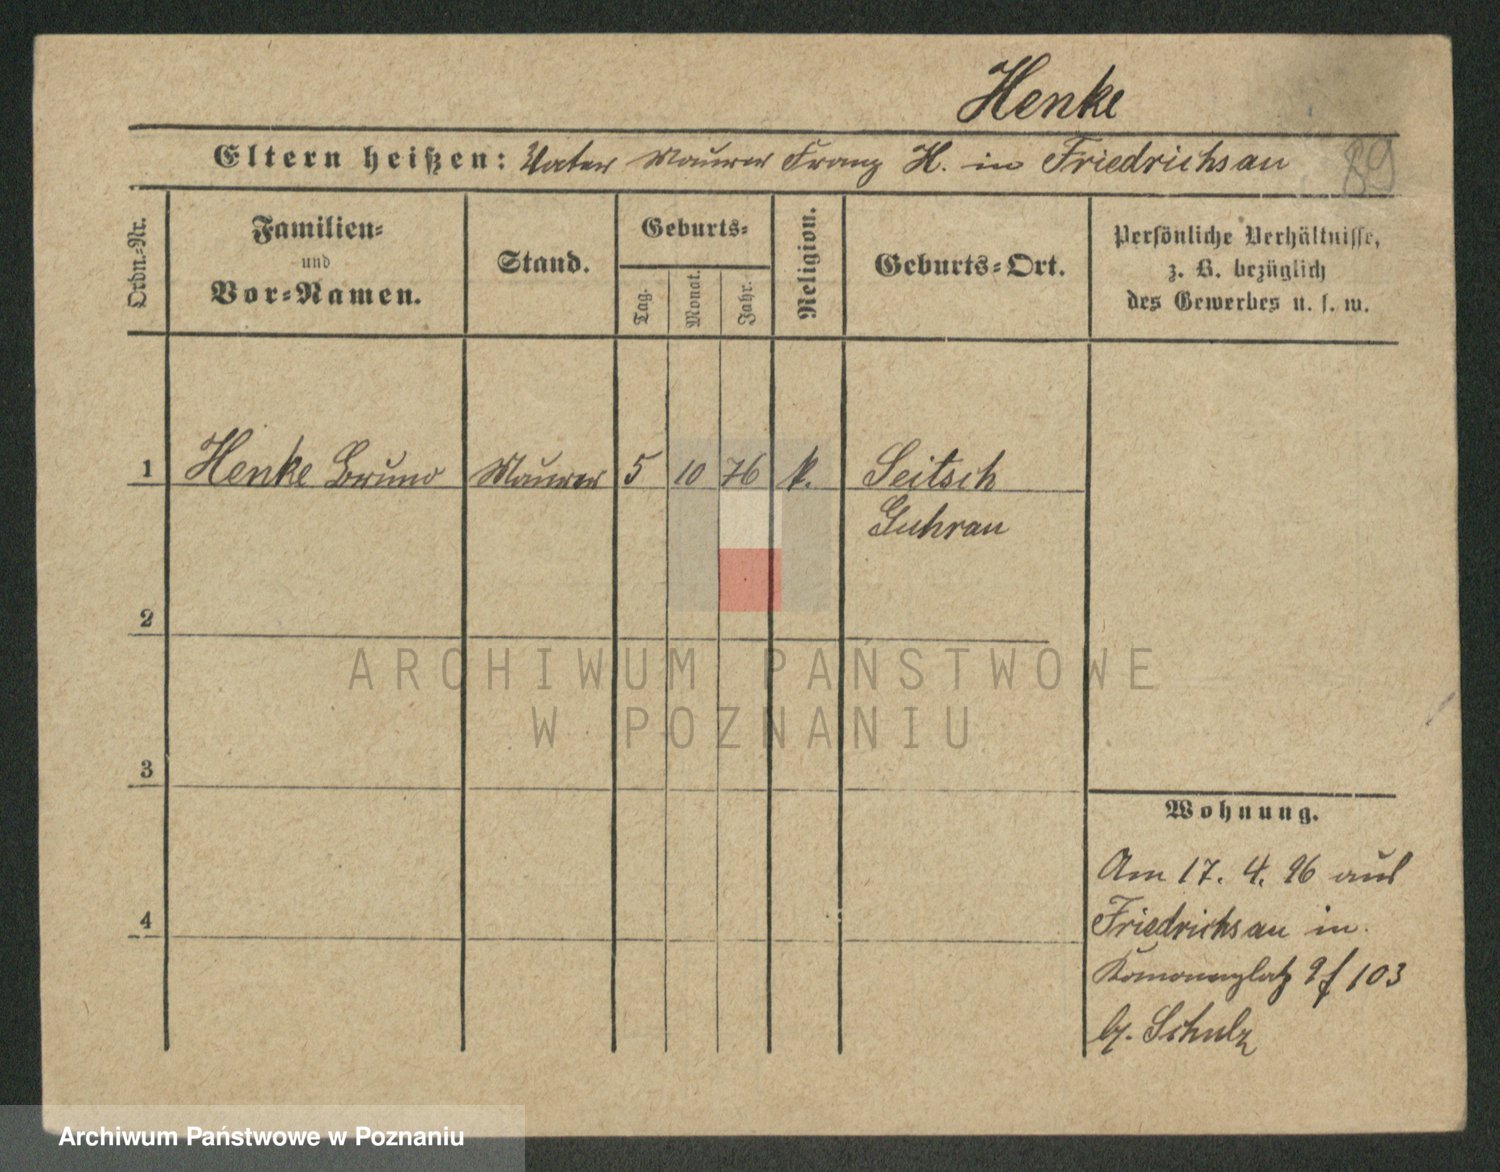 Henke
Eltern heißen: Vater Maurer Franz H. in Friedrichsau
89
Ordn.-Nr.
Familien-
und
Vor-Namen.
Stand.
Geburts-
Tag.
Monat.
Jahr.
Religion.
Geburts-Ort.
Persönliche Verhältnisse,
z. B. bezüglich
des Gewerbes u. s. w.
1 Henke Bruno Maurer 5 10 76 k. Seitsch
Guhrau
2
ARCHIWUM PAŃSTWOWE
W POZNANIU
3
Wohnung.
Am 17. 4. 96 aus
Friedrichsau in
4
103
b/. Schulz
Archiwum Państwowe w Poznaniu